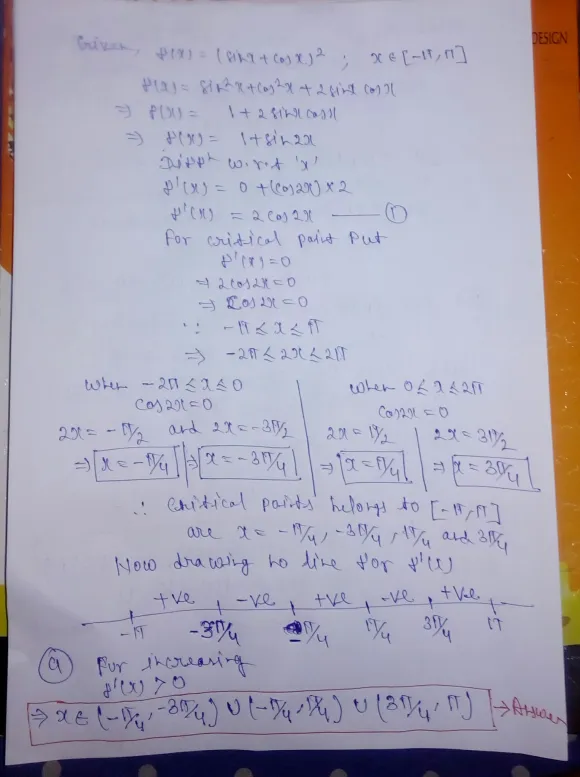 DESIGN
Given, f(x) = (sinx + cosx)² ; x ∈ [-π, π]
f(x) = sin²x + cos²x + 2 sinx cosx
⇒ f(x) = 1 + 2 sinx cosx
⇒ f(x) = 1 + sin2x
Diffⁿ w.r.t 'x'
f'(x) = 0 + (cos2x) × 2
f'(x) = 2 cos2x —— ①
For critical point Put
f'(x) = 0
⇒ 2cos2x = 0
⇒ cos2x = 0
∵ -π ≤ x ≤ π
⇒ -2π ≤ 2x ≤ 2π
When -2π ≤ x ≤ 0
cos2x = 0
2x = -π/2 and 2x = -3π/2
⇒ x = -π/4 ⇒ x = -3π/4
when 0 ≤ x ≤ 2π
cos2x = 0
2x = π/2 2x = 3π/2
⇒ x = π/4 ⇒ x = 3π/4
∴ Critical points belongs to [-π, π]
are x = -π/4, -3π/4, π/4 and 3π/4
Now drawing no line for f'(x)
+ve -ve +ve -ve +ve
-π -3π/4 -π/4 π/4 3π/4 π
(a) For increasing
f'(x) > 0
⇒ x ∈ (-π/4, -3π/4) ∪ (-π/4, π/4) ∪ (3π/4, π) → Answer